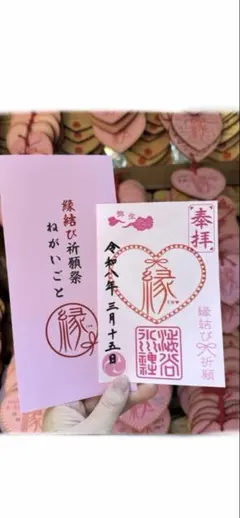 縁結び祈願祭
ねがいごと
縁
奉拝
弥生
縁
縁結び
祈願
令和八年三月十五日
渋谷
氷川神社